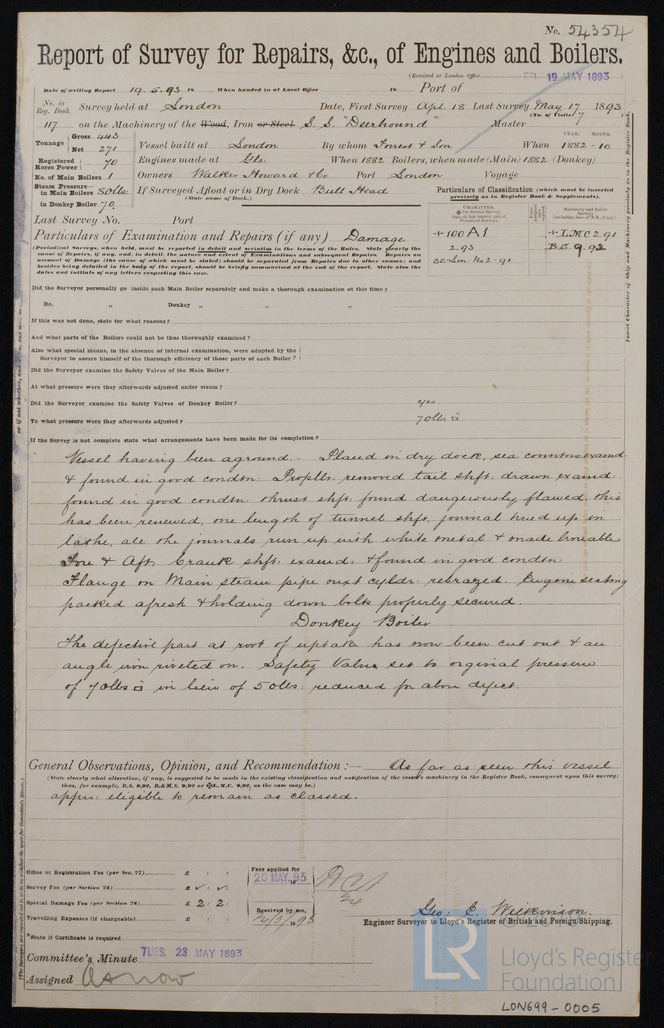 No. 54354
Report of Survey for Repairs, &c., of Engines and Boilers.
(Received at London Office FRI. 19 MAY 1893)
Date of writing Report 19.5.93 18 When handed in at Local Office 18 Port of
No. in Reg. Book. Survey held at London Date, First Survey Apl. 18 Last Survey May 17 1893
(No. of Visits) 7
117 on the Machinery of the Wood, Iron or Steel S. S. "Deerhound" Master
Tonnage Gross 443 Net 271 Vessel built at London By whom Forrest & Son When 1882-10
YEAR. MONTH.
Registered Horse Power 70 Engines made at Gls. When 1882 Boilers, when made (Main) 1882 (Donkey)
No. of Main Boilers 1 Owners Walker Howard & Co Port London Voyage
Steam Pressure in Main Boilers 80lbs. If Surveyed Afloat or in Dry Dock Bull Head
(State name of Dock.)
in Donkey Boiler 70
Particulars of Classification (which must be inserted precisely as in Register Book & Supplements).
Last Survey No. Port
CHARACTER.
Machinery and Boiler Surveys
+100A1 +L.M.C. 2.91
2.93 B.S. 9.92
Particulars of Examination and Repairs (if any) Damage
(Periodical Surveys, when held, must be reported in detail and seriatim in the terms of the Rules. State clearly the
cause of Repairs, if any, and, in detail, the nature and extent of Examinations and subsequent Repairs. Repairs on
account of Damage (the cause of which must be stated) should be separated from Repairs due to other causes; and
besides being detailed in the body of the report, should be briefly summarised at the end of the report. State also the
dates and initials of any letters respecting this case.
Did the Surveyor personally go inside each Main Boiler separately and make a thorough examination at this time?
Do. „ Donkey „ „ „ „
If this was not done, state for what reasons?
And what parts of the Boilers could not be thus thoroughly examined?
Also what special means, in the absence of internal examination, were adopted by the
Surveyor to assure himself of the thorough efficiency of those parts of each Boiler?
Did the Surveyor examine the Safety Valves of the Main Boiler?
At what pressure were they afterwards adjusted under steam?
Did the Surveyor examine the Safety Valves of Donkey Boiler? yes
To what pressure were they afterwards adjusted? 70lbs □
If the Survey is not complete state what arrangements have been made for its completion?
Vessel having been aground. Placed in dry dock, sea conntns examd
& found in good condtn: Propllr. removed tail shft. drawn examd
found in good condtn thrust shft. found dangerously flawed, this
has been renewed, one length of tunnel shft, journal trued up in
lathe, all the journals run up with white metal & made lineable
Fore & Aft. Crank shft. examd: & found in good condtn:
Flange on Main steam pipe next cyldr: rebrazed. Engine seating
packed afresh & holding down bolts properly secured.
Donkey Boiler
The defective part at root of uptake has now been cut out & an
angle iron riveted on. Safety Valves set to orginal pressure
of 70lbs □ in lieu of 50lbs: reduced for above defect.
General Observations, Opinion, and Recommendation:— As far as seen this vessel
(State clearly what alteration, if any, is suggested to be made in the existing classification and notification of the vessel's machinery in the Register Book, consequent upon this survey;
thus, for example, B.S. 9,92, B.&M.S. 9,92 or +L.M.C. 9,92, as the case may be.)
appns: eligible to remain as classed.
Office or Registration Fee (per Sec. 77) £ : :
Survey Fee (per Section 78) £ : :
Special Damage Fee (per Section 78) £ 2 : 2 :
Travelling Expenses (if chargeable) £ : :
Fees applied for
20 MAY .93
Received by me,
*State if Certificate is required
Geo: C. Wilkinson.
Engineer Surveyor to Lloyd's Register of British and Foreign Shipping.
Committee's Minute TUES. 23 MAY 1893
Assigned As now
LR
Lloyd's Register
Foundation
LON699-0005